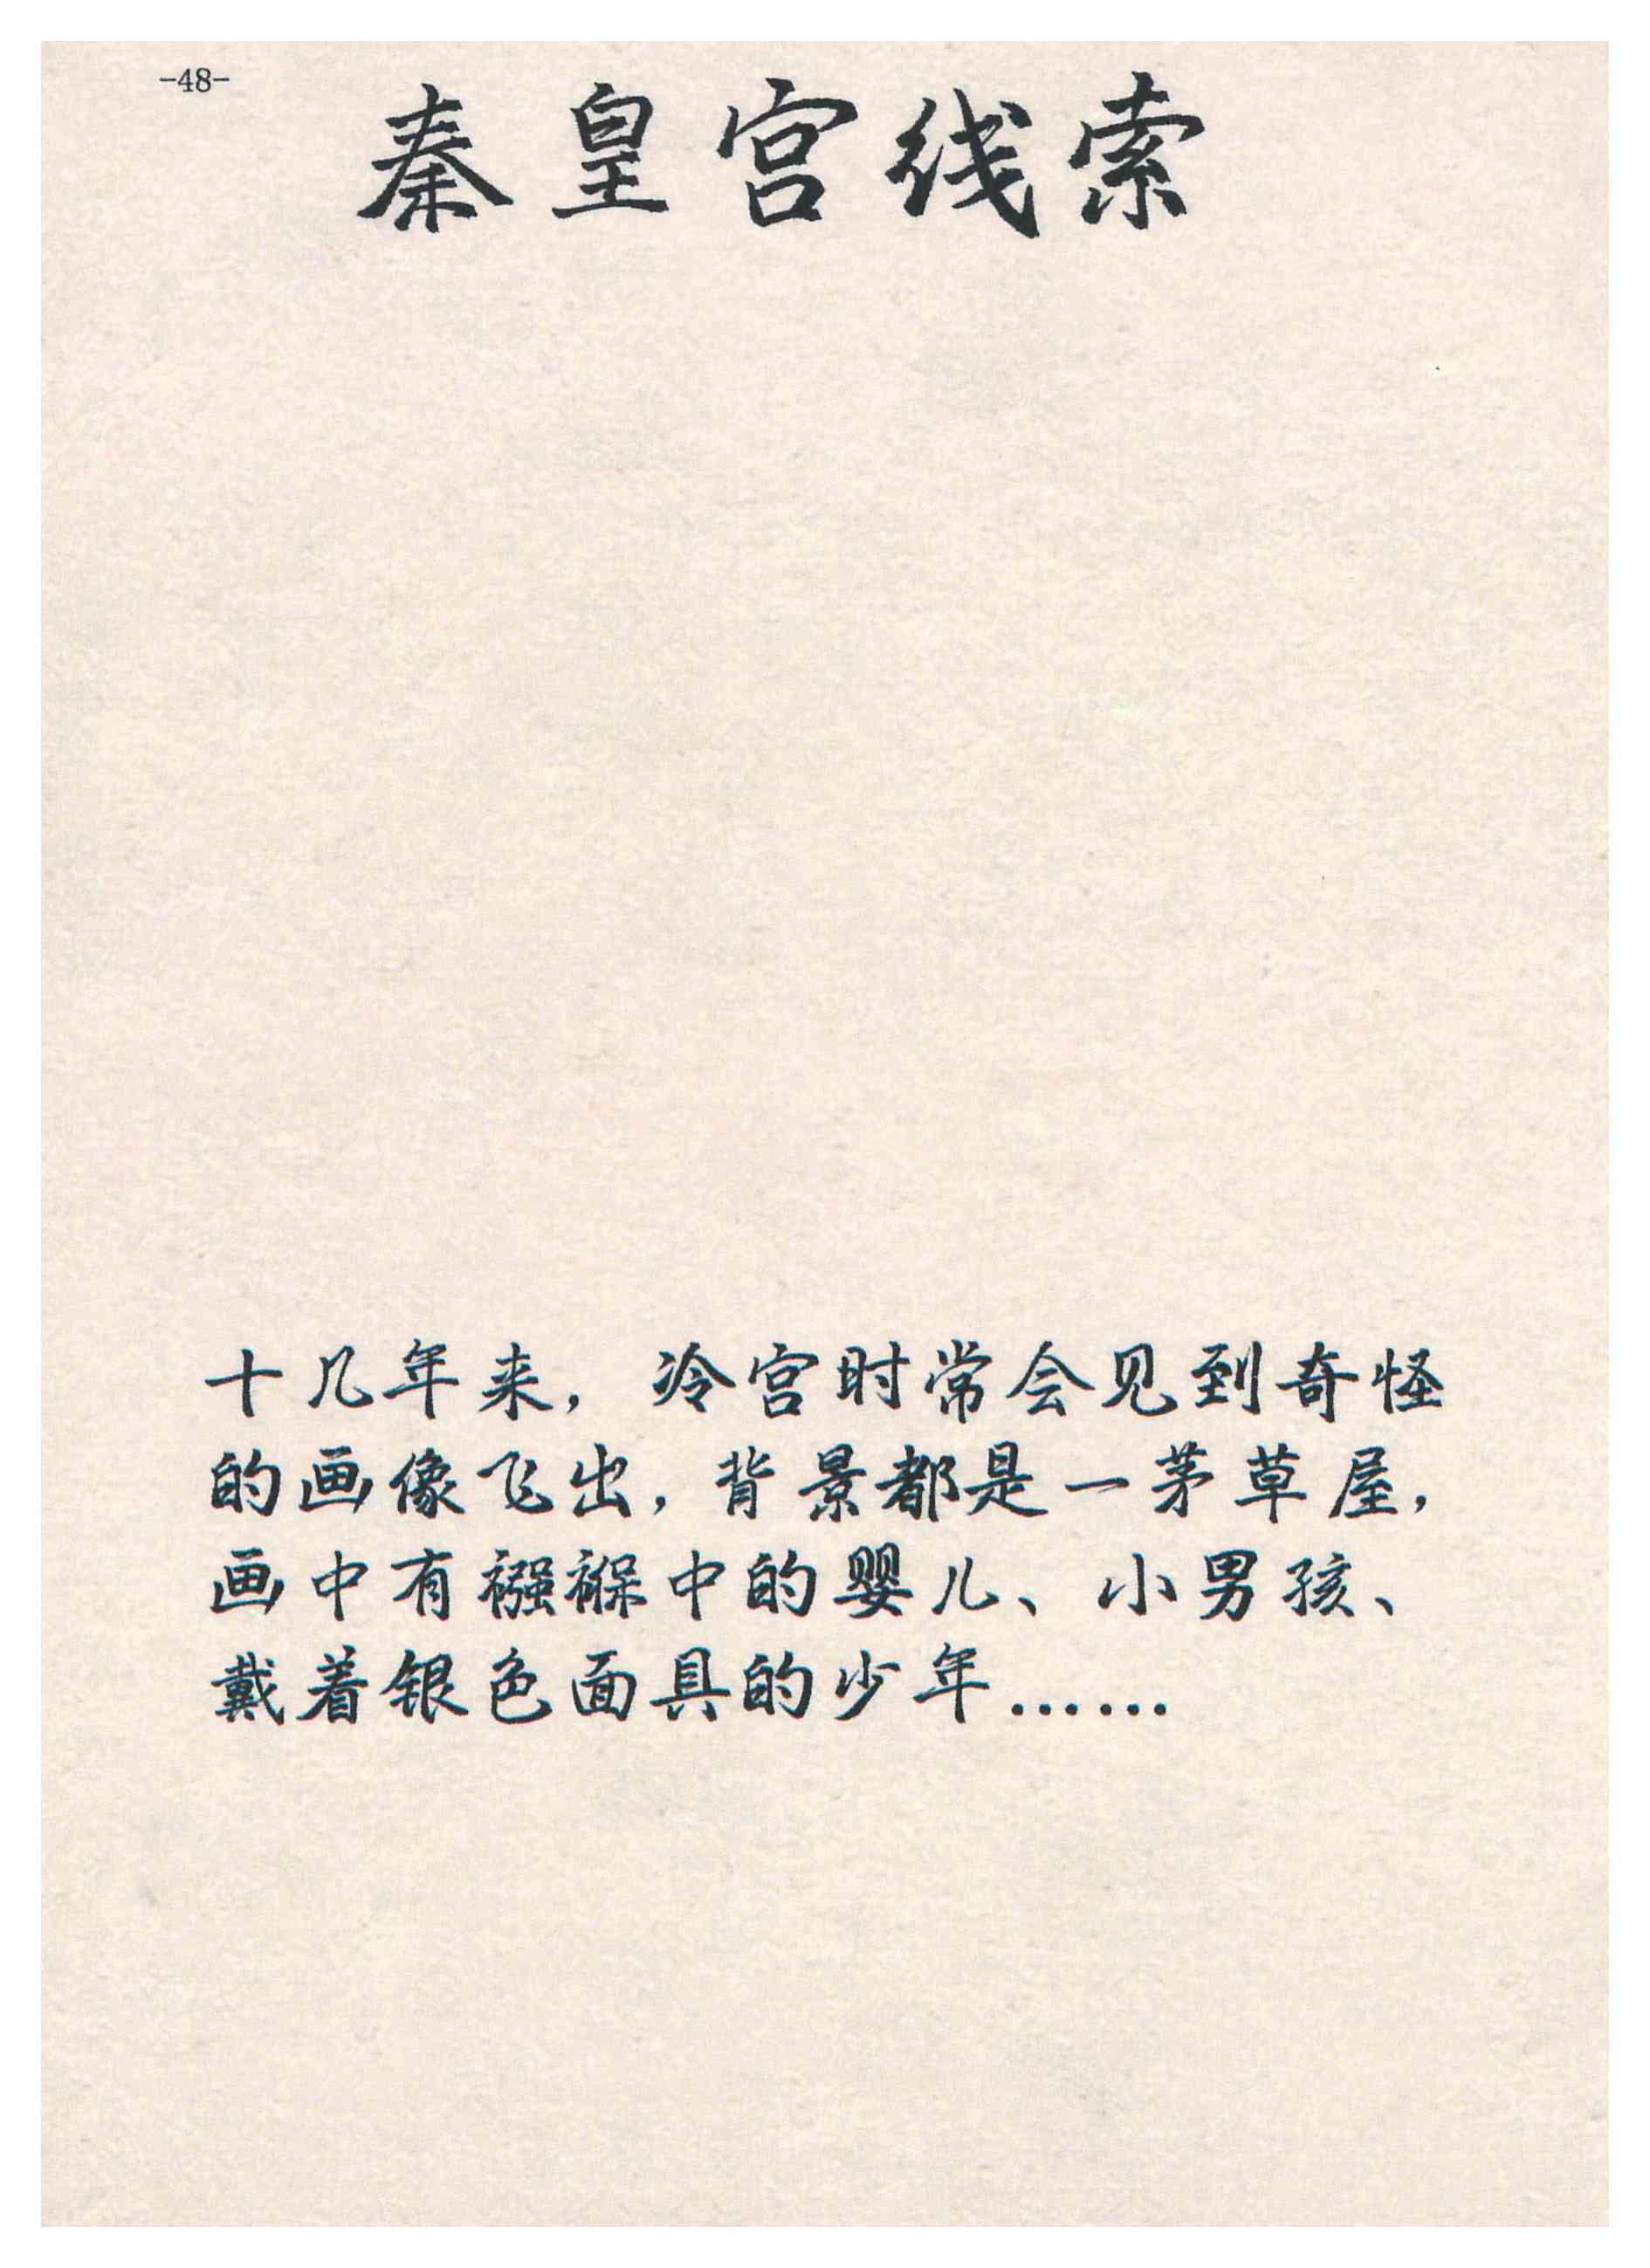 -48-
秦皇宫线索
十几年来，冷宫时常会见到奇怪
的画像飞出，背景都是一茅草屋，
画中有襁褓中的婴儿、小男孩、
戴着银色面具的少年……